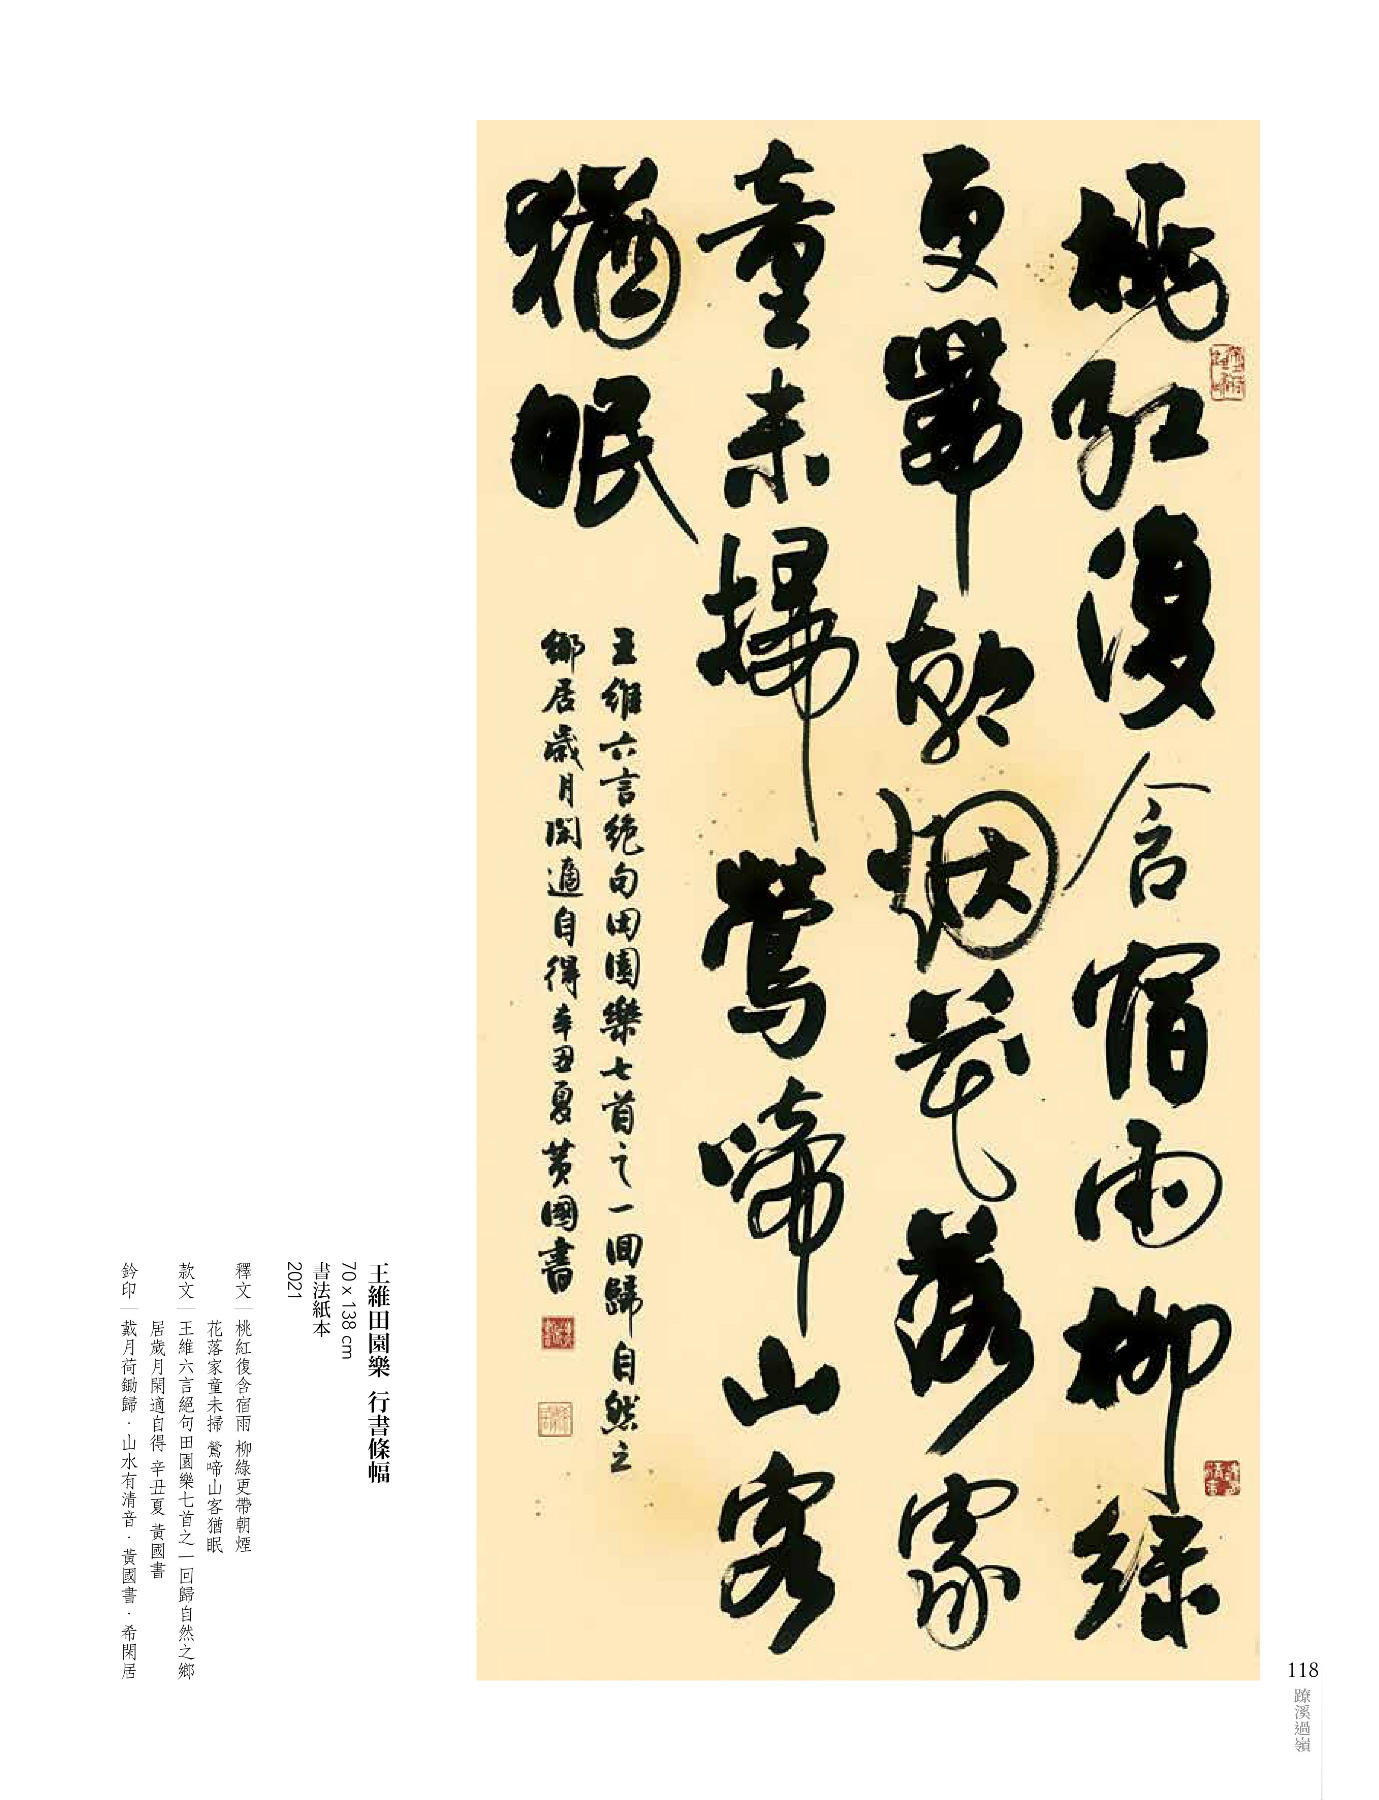 桃紅復含宿雨柳綠
更帶朝烟花落家
童未掃鶯啼山客
猶眠
王維六言絕句田園樂七首之一回歸自然之
鄉居歲月閑適自得辛丑夏黃國書
王維田園樂 行書條幅
70 x 138 cm
書法紙本
2021
釋文｜桃紅復含宿雨 柳綠更帶朝煙
花落家童未掃 鶯啼山客猶眠
款文｜王維六言絕句田園樂七首之一回歸自然之鄉
居歲月閑適自得 辛丑夏 黃國書
鈐印｜戴月荷鋤歸．山水有清音．黃國書．希閑居
118
蹽溪過嶺